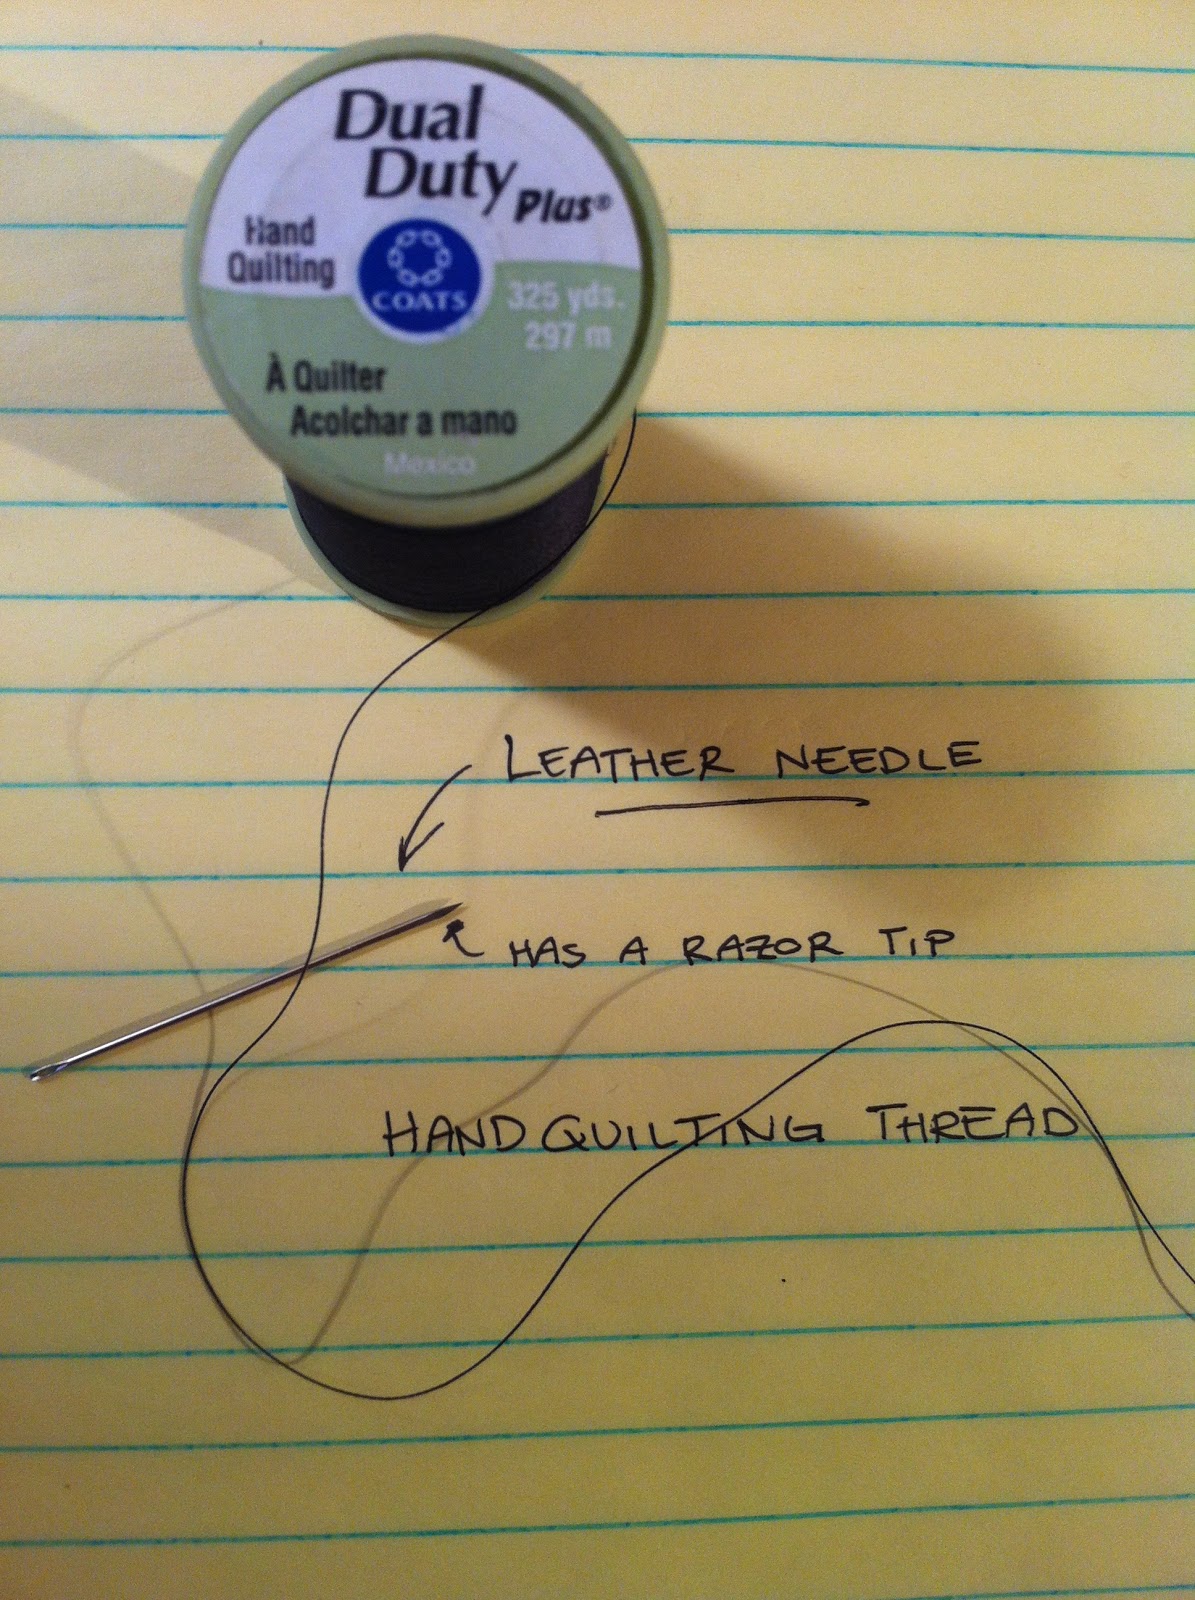 Dual
Duty Plus®
Hand
Quilting
COATS
325 yds.
297 m
À Quilter
Acolchar a mano
Mexico
LEATHER NEEDLE
HAS A RAZOR TIP
HAND QUILTING THREAD